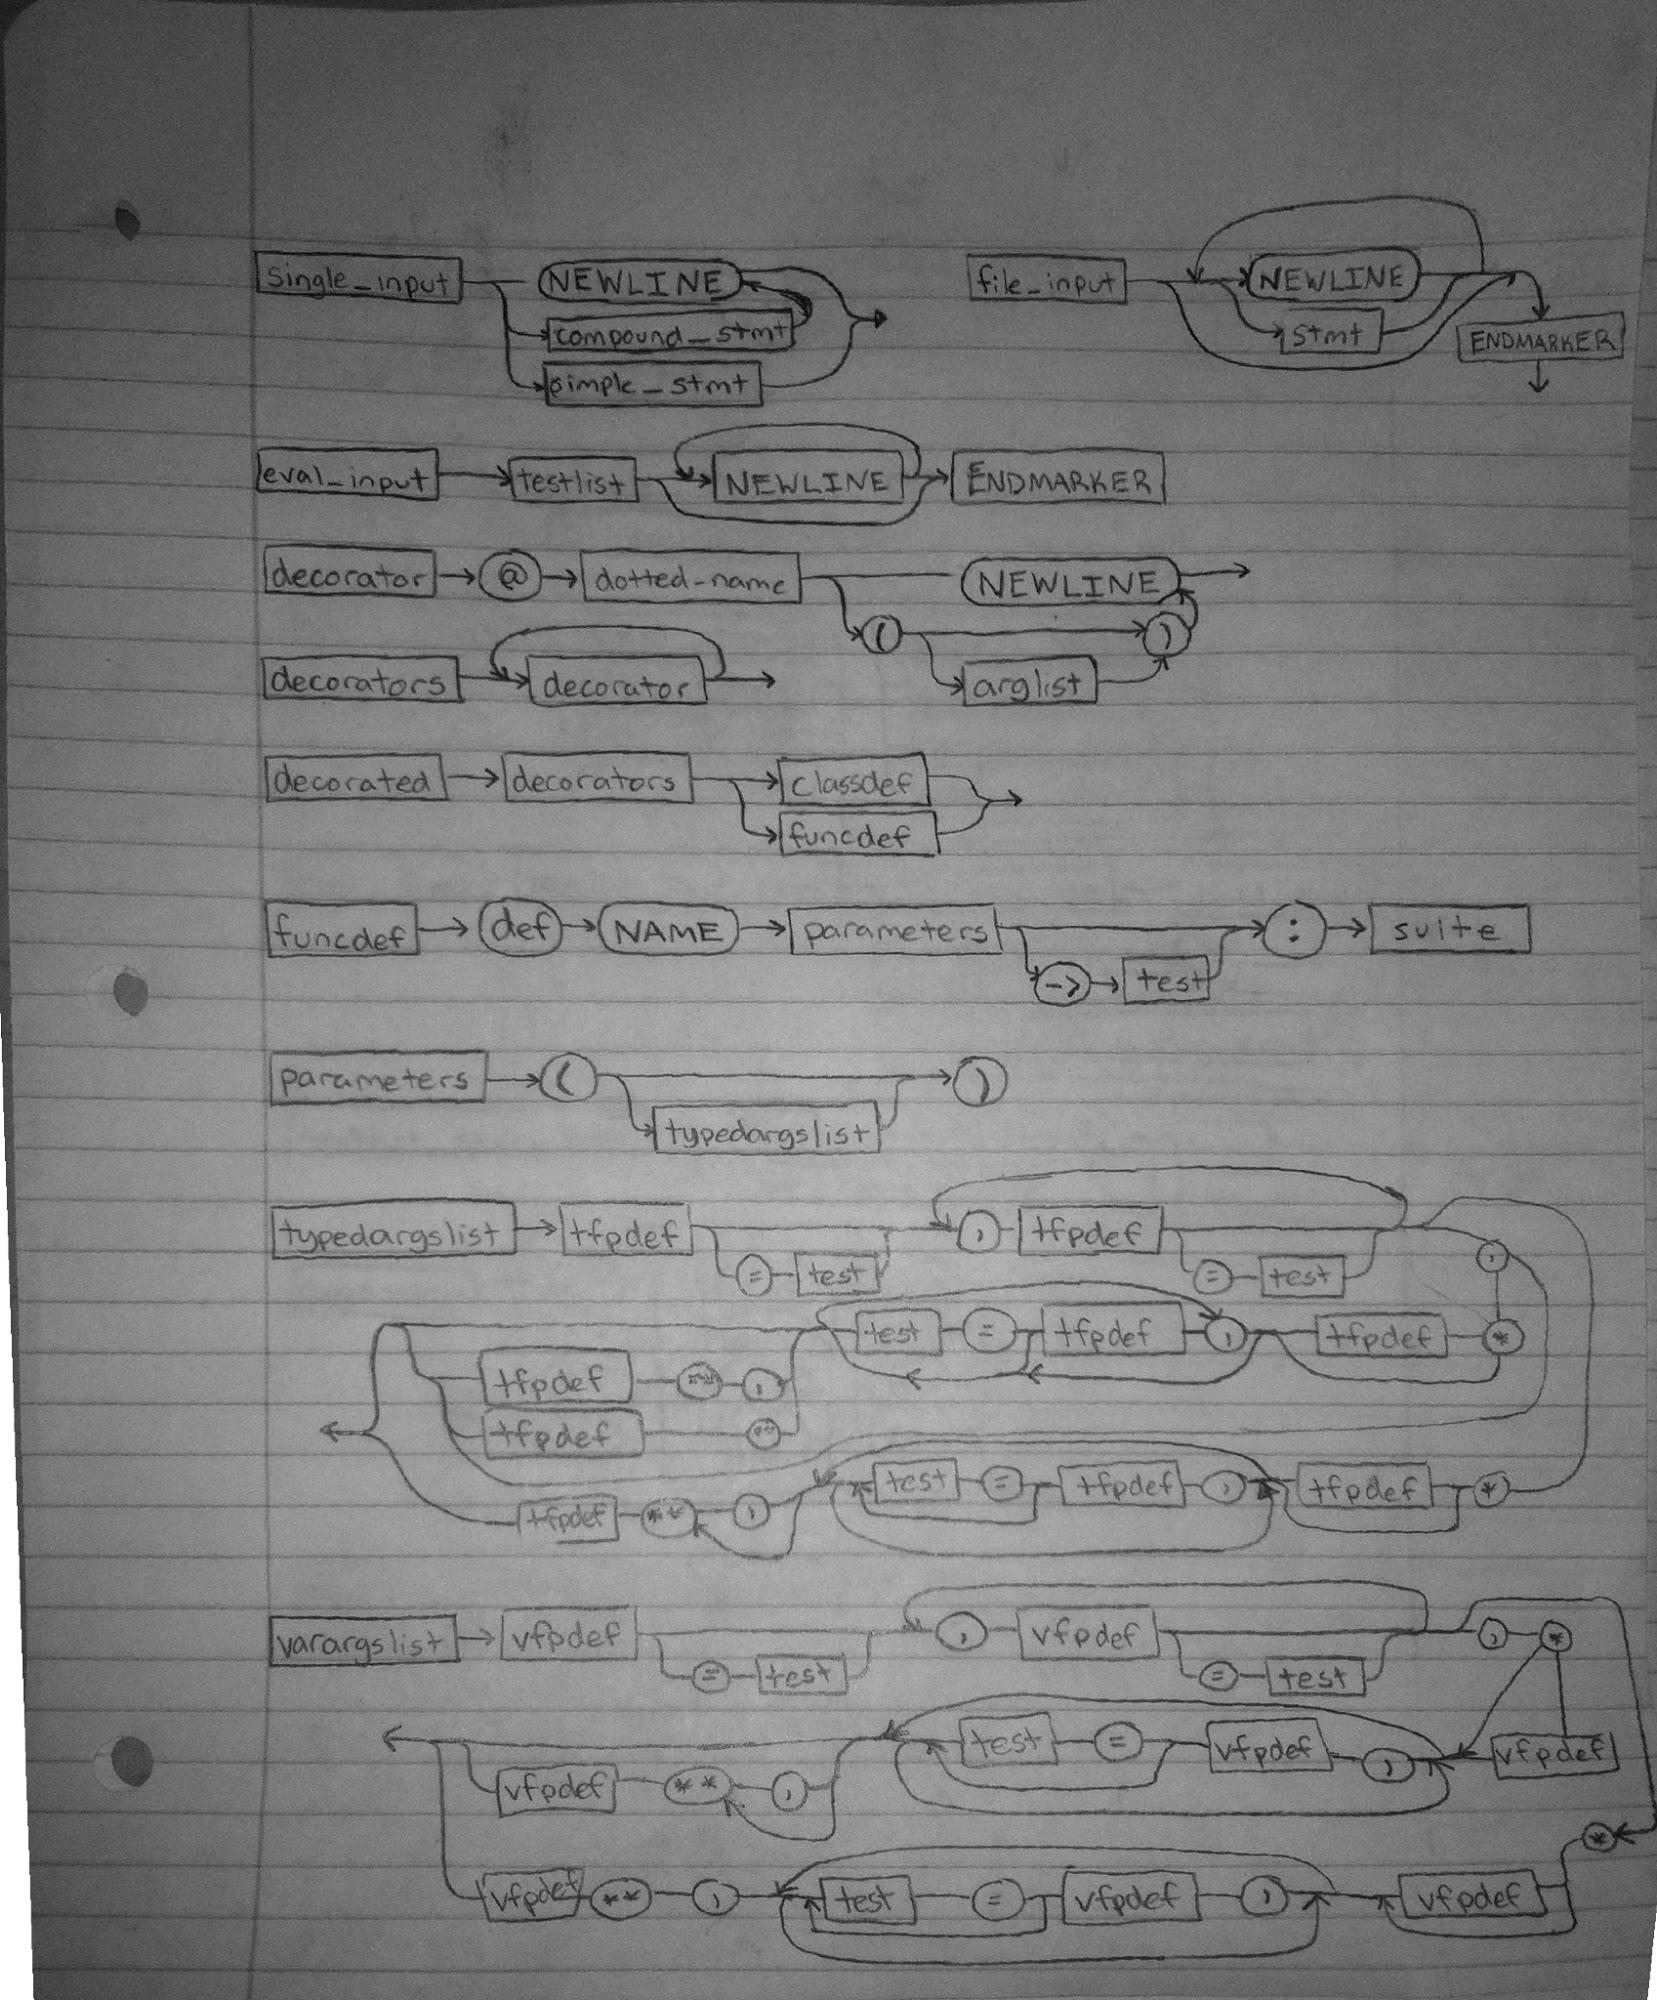 single_input NEWLINE file_input NEWLINE
compound_stmt stmt ENDMARKER
simple_stmt
eval_input testlist NEWLINE ENDMARKER
decorator @ dotted-name NEWLINE
( )
decorators decorator arglist
decorated decorators classdef
funcdef
funcdef def NAME parameters : suite
-> test
parameters ( )
typedargslist
typedargslist tfpdef , tfpdef ,
= test = test
test = tfpdef , tfpdef *
tfpdef ** ,
tfpdef **
test = tfpdef , tfpdef *
tfpdef ** ,
varargslist vfpdef , vfpdef , *
= test = test
test = vfpdef , vfpdef
vfpdef ** ,
*
vfpdef ** , test = vfpdef , vfpdef